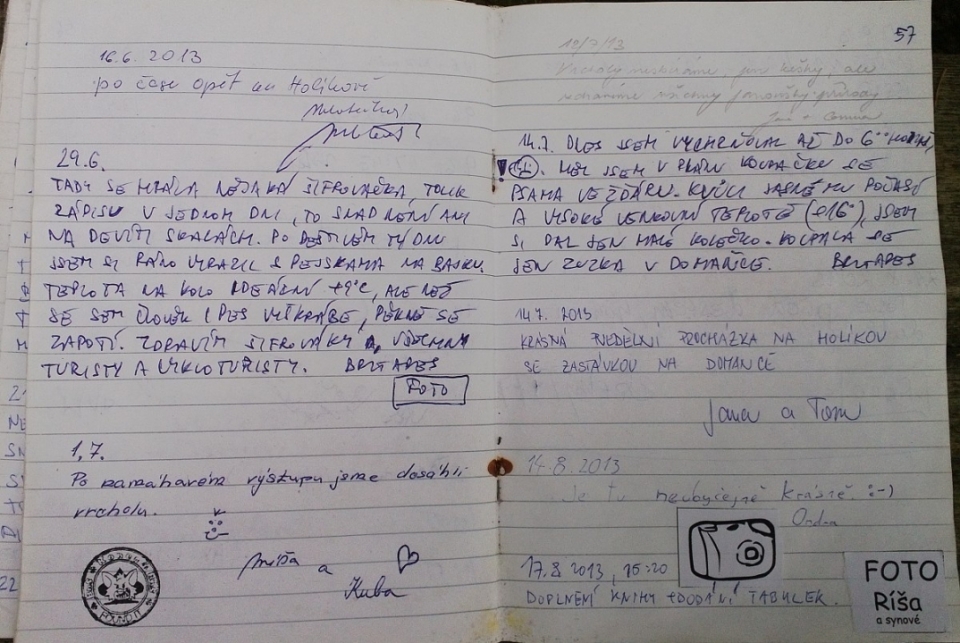 16.6. 2013
po čase opět na Holíkově
29.6.
TADY SE HRÁLA NĚJAKÁ ŠIFROVAČKA, TOLIK
ZÁPISŮ V JEDNOM DNI, TO SNAD NENÍ ANI
NA DEVÍTI SKALÁCH. PO DEŠTIVÉM TÝDNU
JSEM SI RÁNO VYRAZIL S PEJSKAMA NA
TEPLOTA NA KOLO IDEÁLNÍ +9°C, ALE NEŽ
SE SEM ČLOVĚK I PES VYŠKRÁBE, PĚKNĚ SE
ZAPOTÍ. ZDRAVÍM ŠIFROVÁKY A VŠECHNY
TURISTY A CYKLOTURISTY. BRITAPES
FOTO
1.7.
Po namáhavém výstupu jsme dosáhli
vrcholu.
Míša a
Kuba
57
10/7/13
Vrcholy nesbíráme, jen kešky, ale
14.7. DNES JSEM VYCHRŇOVAL AŽ DO 6
JSEM V PLÁNU KOUPAČKU SE
PSAMA VE ŽĎÁRU. KVŮLI JASNÉMU POČASÍ
A VYSOKÉ VENKOVNÍ TEPLOTĚ (+16°), JSEM
SI DAL JEN MALÉ KOLEČKO. KOUPALA SE
JEN ZUZKA V DOMANČE. BRITAPES
14.7. 2013
KRÁSNÁ NEDĚLNÍ PROCHÁZKA NA HOLÍKOV
SE ZASTÁVKOU NA DOMANCE
Jana a Tom
14.8.2013
Je tu neobyčejně krásně. :-)
Ondra
17.8.2013, 15:20
DOPLNĚNÍ KNIHY + DODÁNÍ TABULEK.
FOTO
Ríša
a synové